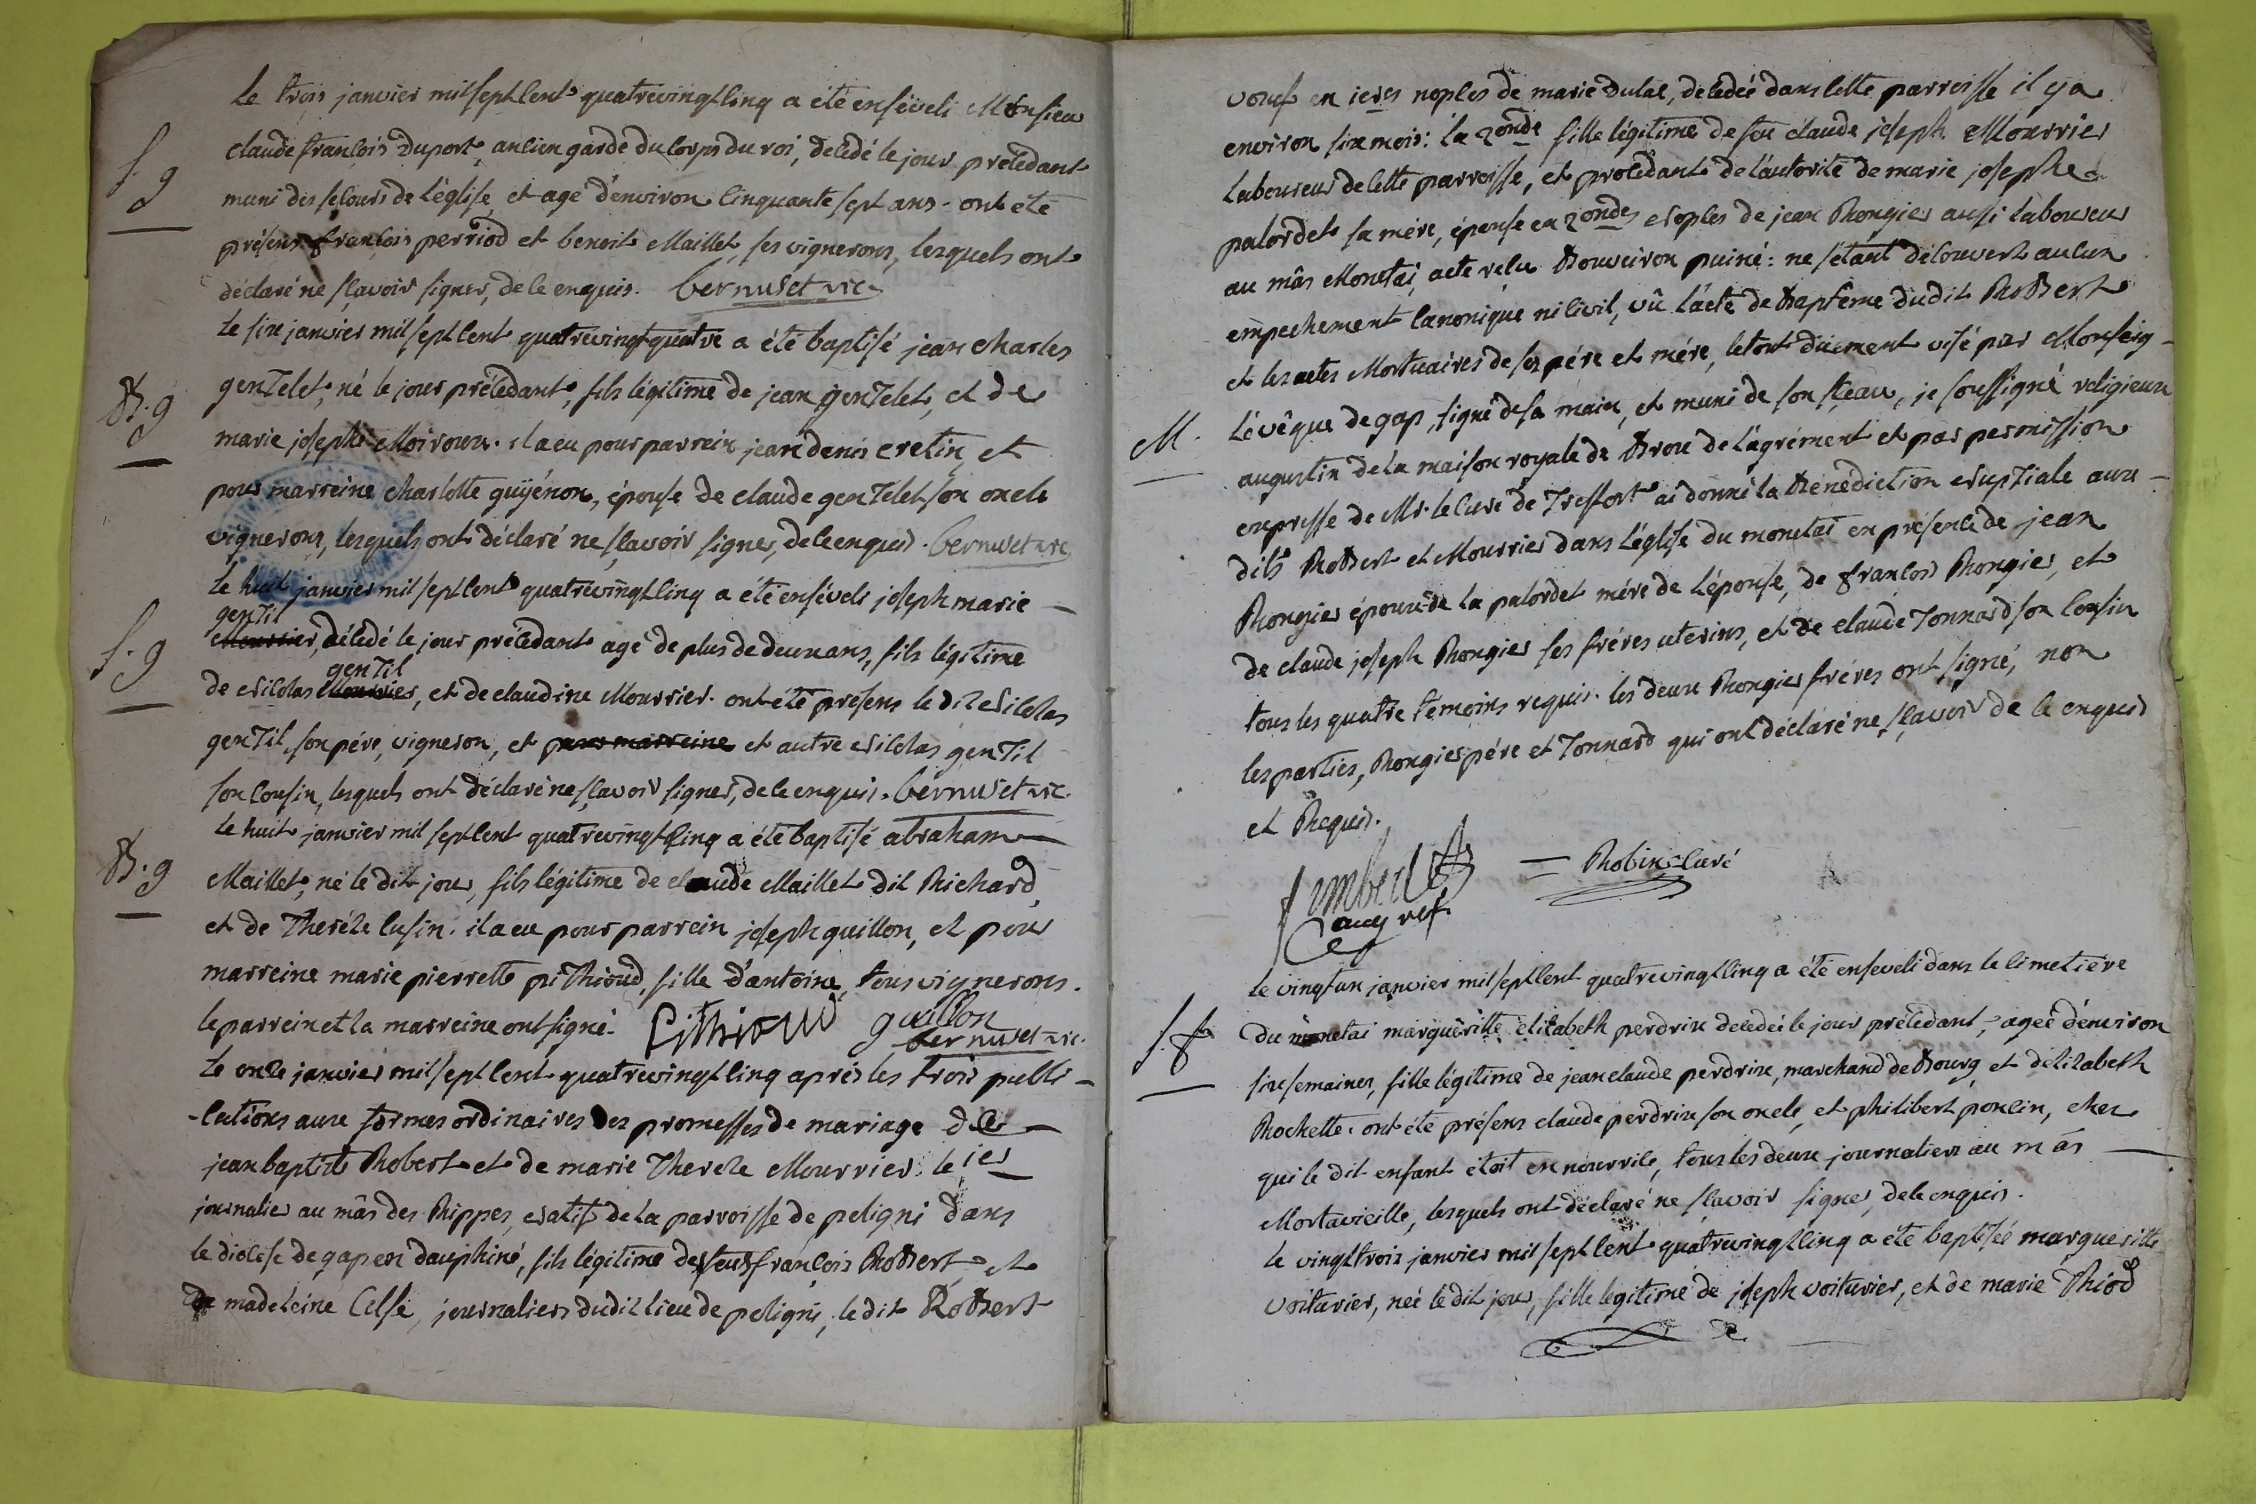 Le trois janvier mil sept cent quatrevingt cinq a été enséveli Monsieur
S. g
claude françois Duport, ancien garde du corps du roi, decedé le jour précedant
muni des secours de l'église, et agé d'environ cinquante sept ans. ont été
présens françois perriod et benoit Maillet, ses vignerons, lesquels ont
déclaré ne sçavoir signer, de ce enquis. bernuset vic.
Le six janvier mil sept cent quatrevingt quatre a été baptisé jean charles
B. g
genTelet, né le jour précedant, fils légitime de jean genTelet, et de
marie josephe Moiroux. il a eu pour parrein jean denis cretin, et
pour marreine charlotte guyénon, épouse de claude genTelet son oncle
vignerons, lesquels ont déclaré ne sçavoir signer, de ce enquis. bernuset vic.
Le huit janvier mil sept cent quatrevingt cinq a été enséveli joseph marie
S. g
genTil
Mourrier, décedé le jour précedant agé de plus de deux ans, fils légitime
genTil
de Nicolas Mourrier, et de claudine Mourrier. ont été présens le dit Nicolas
genTil, son pére, vigneron, et pour marreine et autre Nicolas genTil
son cousin, lesquels ont déclaré ne sçavoir signer, de ce enquis. bernuset vic.
Le huit janvier mil sept cent quatrevingt cinq a été baptisé abraham
B. g
Maillet, né le dit jour, fils légitime de claude Maillet dit Richard,
et de Theréze cusin. il a eu pour parrein joseph guillon, et pour
marreine marie pierrette piThioud, fille d'antoine, tous vignerons.
le parrein et la marreine ont signé. PiThioud guillon
bernuset vic.
Le onze janvier mil sept cent quatrevingt cinq aprés les trois publi-
-cations aux formes ordinaires des promesses de mariage de
jean baptiste Robert et de marie Thereze Mourrier: le 1er
journalier au mâs des Rippes, natif de la parroisse de peligni dans
le diocése de gap en dauphiné, fils légitime de feus françois Robert et
de madeleine Celse, journaliers dudit lieu de peligni, le dit Robert
veuf en 1eres noples de marie Dulac, decedée dans cette parroisse il y a
environ six mois: la 2onde fille légitime de feu claude joseph Mourrier
laboureur de cette parroisse, et procédant de l'autorité de marie josephe
palordet sa mére, épouse en 2ondes noples de jean Rongier aussi laboureur
au mâs Monetai, acte reçu Bouveiron puiné: ne s'étant découvert aucun
empechement canonique ni civil, vû l'acte de Baptême dudit Robert
et les actes Mortuaires de ses pére et mére, le tout düement visé par Monseig-
M.
L'évêque de gap, signé de sa main, et muni de son sçeau, je soussigné religieux
augustin de la maison royale de Brou de l'agrément et par permission
expresse de Mr. le curé de Treffort ai donné la Bénédiction NupTiale aux-
dits Robert et Mourrier dans l'église du monetai en présence de jean
Rongier époux de la palordet mére de l'épouse, de françois Rongier, et
de claude joseph Rongier ses fréres uterins, et de claude Tonnard son cousin
tous les quatre témoins requis. les deux Rongier fréres ont signé, non
les parties, Rongier pére et Tonnard qui ont déclaré ne sçavoir de ce enquis
et Requis.
f imbert
aug rel.
Robin curé
Le vingt un janvier mil sept cent quatrevingt cinq a été enseveli dans le cimetiére
S. f
Du monetai margueritte elizabeth perdrix decedée le jour précedant, agée d'environ
six semaines, fille légitime de jean claude perdrix, marchand de Bourg, et d'elizabeth
Rochette. ont été présens claude perdrix son oncle, et philibert poncin, chez
qui le dit enfant étoit en nourrice, tous les deux journaliers au mâs
Mortavieille, lesquels ont déclaré ne sçavoir signer, de ce enquis.
Le vingt trois janvier mil sept cent quatrevingt cinq a été baptisée margueritte
voiturier, née le dit jour, fille légitime de joseph voiturier, et de marie Thiod